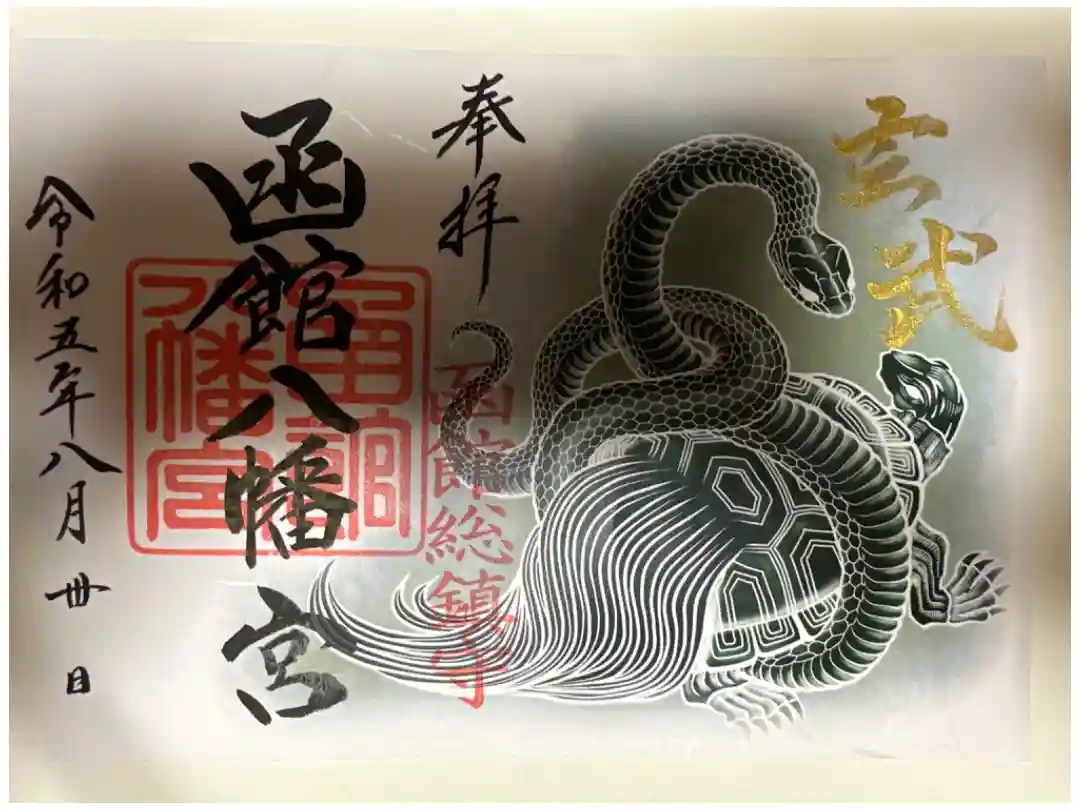 玄武
奉拝
函館総鎮守
函館八幡宮
函館八幡宮
令和五年八月卅日